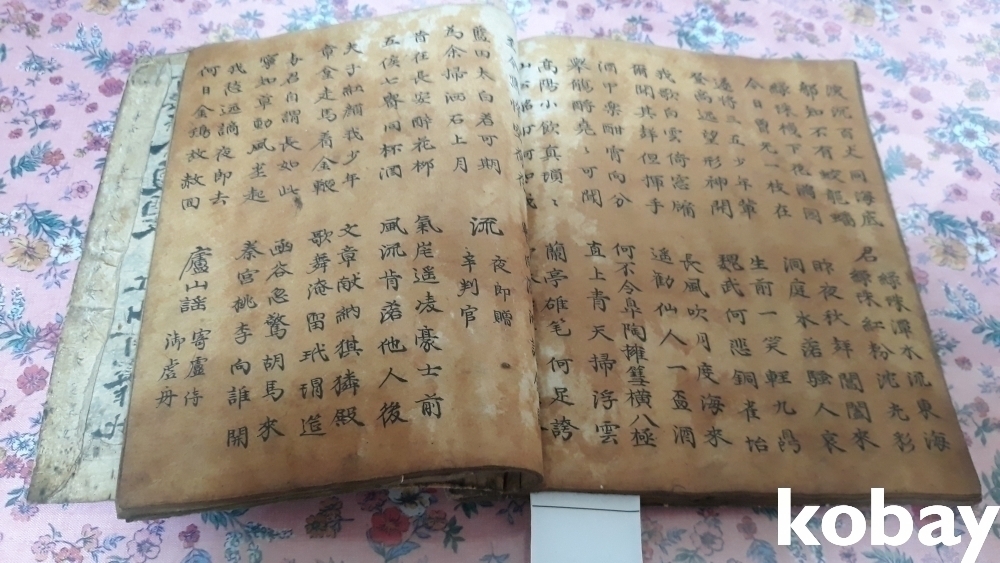 深沉百丈洞海底
那知不有蛟龍蟠
綠珠潭水流東海
綠珠紅粉沈光彩
綠珠樓下花滿園
今日曾無一枝在
昨夜秋聲閶闔來
洞庭水落騷人哀
遂將三五少年輩
登高遠望形神開
生前一笑輕九鼎
魏武何悲銅雀怡
我歌白雲倚窓牖
爾聞其聲但揮手
長風吹月度海來
遙勸仙人一盃酒
酒中樂酣宵向分
舉觴酹堯〻可聞
何不令皐陶擁篲橫八極
直上青天掃浮雲
高陽小飲真瑣〻
蘭亭雄笔何足誇
藍田太白若可期
為余掃洒石上月
流夜郎贈辛判官
昔在長安醉花柳
五侯七貴同杯酒
氣崖遙凌豪士前
風流肯落他人後
夫子紅顏我少年
章臺走馬着金鞭
文章献納猉獜殿
歌舞淹留玳瑁筵
与君自謂長如此
寧知草動風塵起
函谷忽驚胡馬來
秦宮桃李向誰開
我愁遠謫夜郎去
何日金鷄放赦回
廬山謠寄盧侍御虛舟
kobay